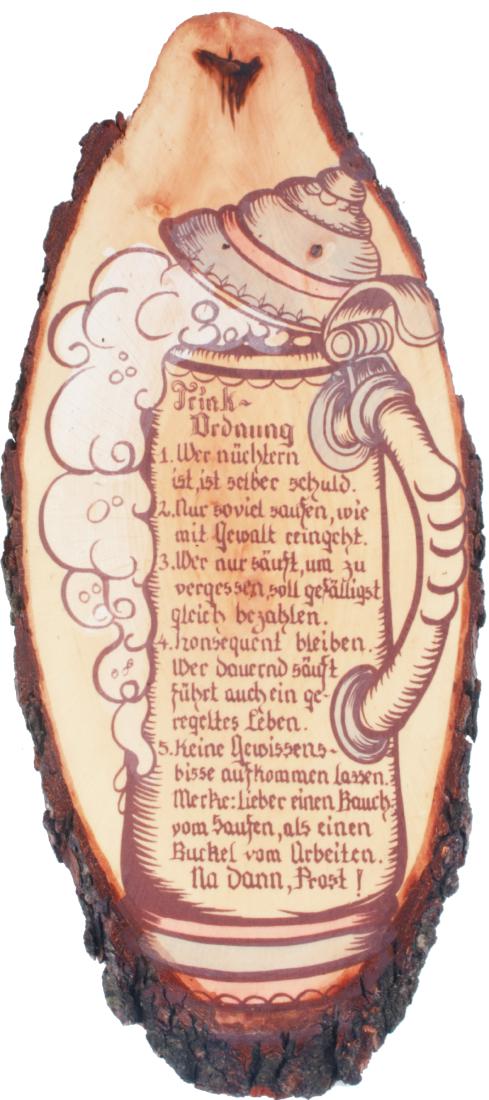 Trink-
Ordnung
1. Wer nüchtern
ist, ist selber schuld.
2. Nur soviel saufen, wie
mit Gewalt reingeht.
3. Wer nur säuft, um zu
vergessen, soll gefälligst
gleich bezahlen.
4. Konsequent bleiben.
Wer dauernd säuft
führt auch ein ge-
regeltes Leben.
5. Keine Gewissens-
bisse aufkommen lassen.
Merke: Lieber einen Bauch
vom Saufen, als einen
Buckel vom Arbeiten.
Na dann, Prost!